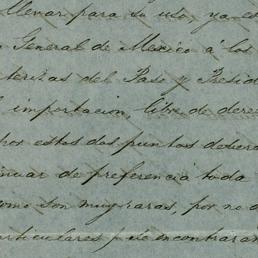 llevar para su uso, ya es
General de Mexico á los
del Paso y Presid
importacion, libre de dere
por estos dos puntos debera
de preferencia toda
como son muy raras, por no
particulares se encontraran